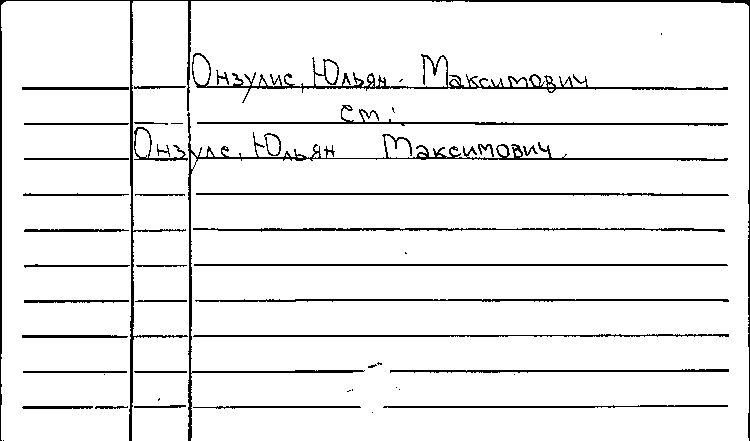 Онзулис, Юльян Максимович
см:
Онзулс, Юльян Максимович.